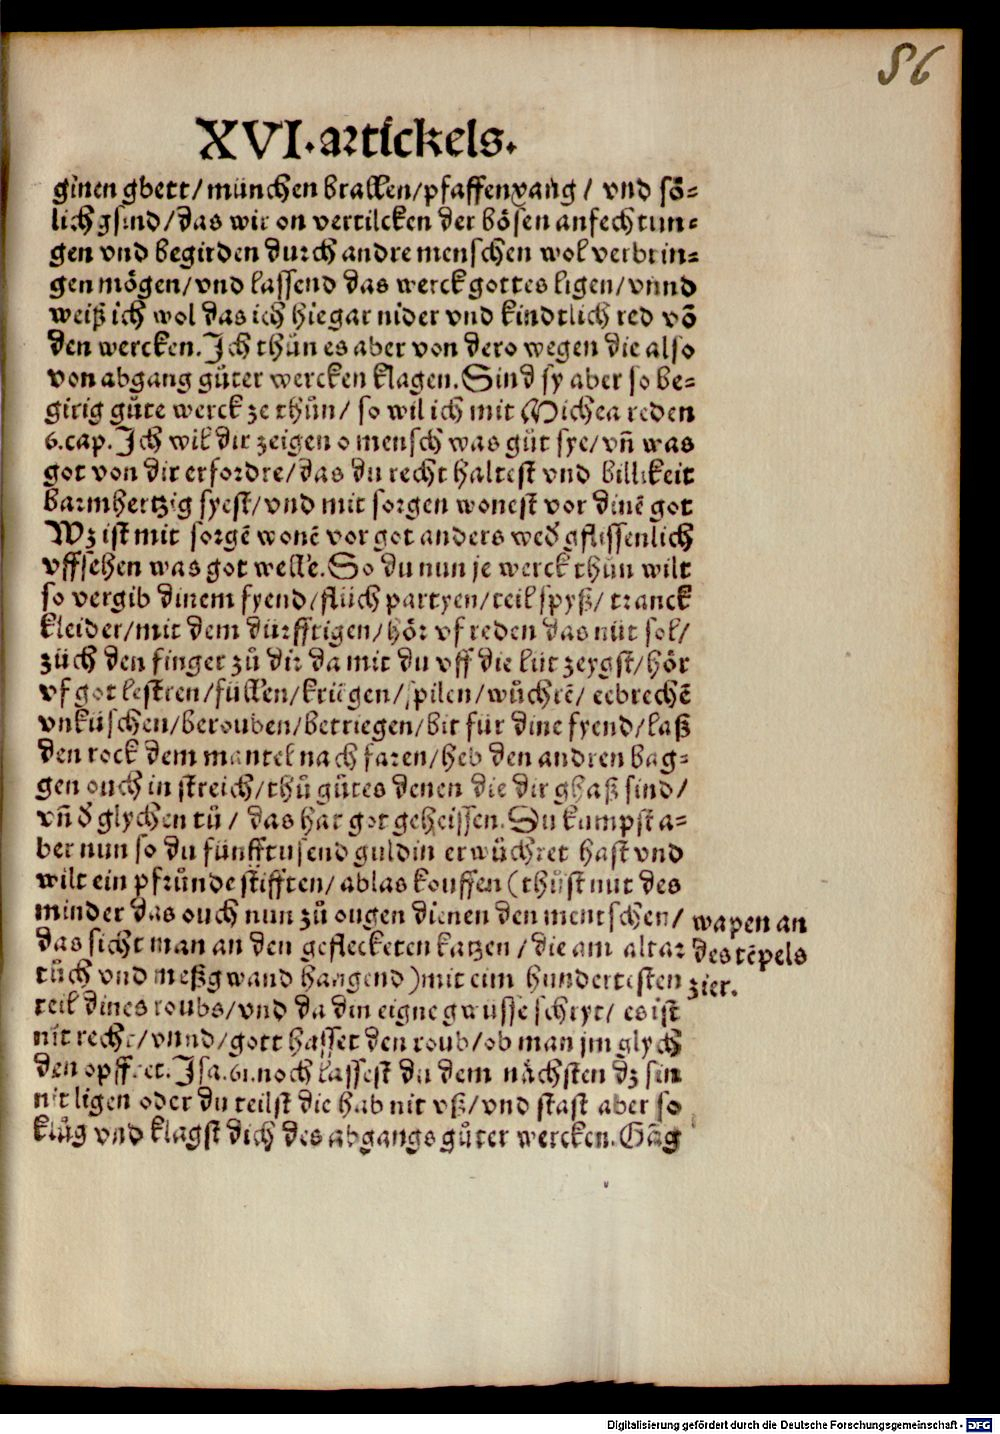 86
XVI. artickels.
ginen gbett/ münchen brallen/ pfaffengsang/ vnd sö-
lich gsind/ das wir on vertilcken der bösen anfechtun-
gen vnd begirden durch andre menschen wol verbrin-
gen mögen/ vnd lassend das werck gottes ligen/ vnnd
weiß ich wol das ich hie gar nider vnd kindtlich red võ
den wercken. Ich thůn es aber von dero wegen die also
von abgang gůter wercken klagen. Sind sy aber so be-
girig gůte werck ze thůn/ so wil ich mit Michea reden
6. cap. Ich wil dir zeigen o mensch was gůt sye/ vñ was
got von dir erfordre/ das du recht haltest vnd billikeit
barmhertzig syest/ vnd mit sorgen wonest vor dinẽ got
Wz ist mit sorgẽ wonẽ vor got anders wed͛ gflissenlich
vffsehen was got welle. So du nun je werck thůn wilt
so vergib dinem fyend/ flüch partyen/ teil spyß/ tranck
kleider/ mit dem dürfftigen/ hör vf reden das nüt sol/
züch den finger zů dir da mit du vff die lüt zeygst/ hör
vf got lestren/ füllen/ kriegen/ spilen/ wůchrẽ/ eebrechẽ
vnküschen/ berouben/ betriegen/ bit für dine fyend/ laß
den rock dem mantel nach faren/ heb den andren bag-
gen ouch in streich/ thů gůtes denen die dir ghaß sind/
vñ d͛ glychen tů/ das hat got geheissen. Du kumpst a-
ber nun so du fünfftusend guldin erwůchret hast vnd
wilt ein pfründe stifften/ ablas kouffen (thůst nut des
minder das ouch nun zů ougen dienen den mentschen/
das sicht man an den geflecketen katzen/ die am altar
tůch vnd meßgwand hangend) mit eim hundertesten
teil dines roubs/ vnd da din eigne gwüsse schryt/ es ist
nit recht/ vnnd/ gott hasset den roub/ ob man jm glych
den opffret. Isa. 61. noch lassest du dem nächsten dz sin
nit ligen oder du teilst die hab nit vß/ vnd stast aber so
klůg vnd klagst dich des abgangs gůter wercken. Gãg
wapen an
des tẽpels
zier.
Digitalisierung gefördert durch die Deutsche Forschungsgemeinschaft - DFG